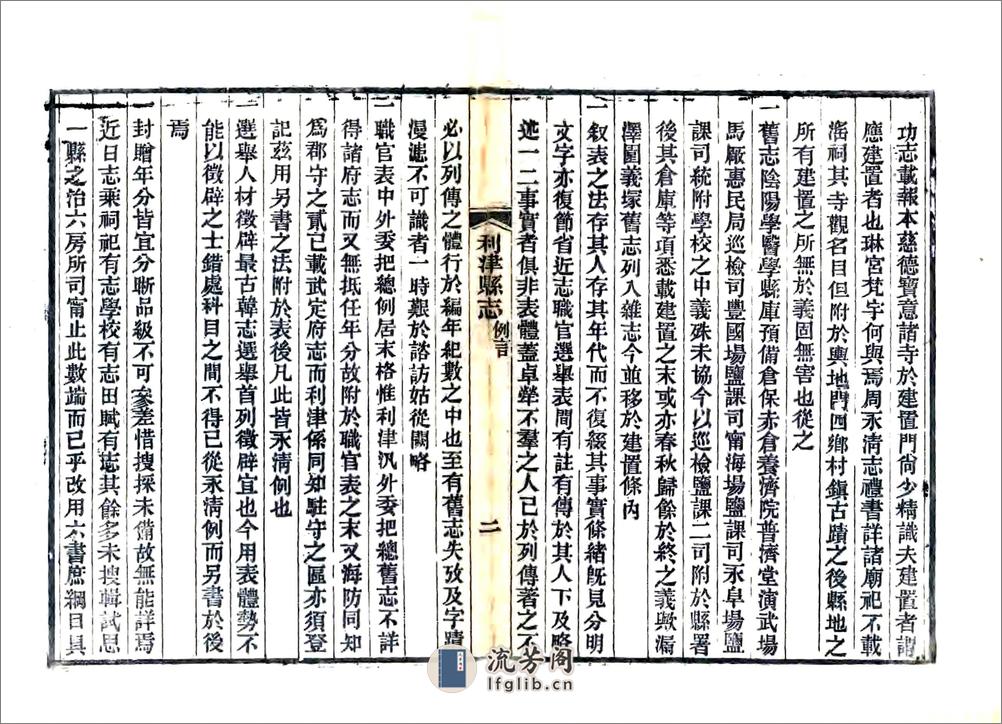 功志載報本慈德寶意諸寺於建置門尚少精識夫建置者謂
應建置者也琳宮梵宇何與焉周永清志禮書詳諸廟祀不載
滛祠其寺觀名目但附於輿地門四鄉村鎮古蹟之後縣地之
所有建置之所無於義固無害也從之
一舊志陰陽學醫學縣庫預備倉保赤倉養濟院普濟堂演武場
馬厰惠民局巡檢司豐國場鹽課司甯海場鹽課司永阜場鹽
課司統附學校之中義殊未協今以巡檢鹽課二司附於縣署
後其倉庫等項悉載建置之末或亦春秋歸餘於終之義歟漏
澤園義塚舊志列入雜志今並移於建置條內
一叙表之法存其人存其年代而不復綴其事實條緒旣見分明
文字亦復節省近志職官選舉表間有註有傳於其人下及略
述一二事實者俱非表體蓋卓犖不羣之人已於列傳著之不
利津縣志
例言
二
必以列傳之體行於編年紀數之中也至有舊志失攷及字蹟
漫漶不可識者一時艱於諮訪姑從闕略
一職官表中外委把總例居末格惟利津汛外委把總舊志不詳
得諸府志而又無抵任年分故附於職官表之末又海防同知
爲郡守之貳已載武定府志而利津係同知駐守之區亦須登
記茲用另書之法附於表後凡此皆永清例也
一選舉人材徵辟最古韓志選舉首列徵辟宜也今用表體勢不
能以徵辟之士錯處科目之間不得已從永清例而另書於後
焉
一封贈年分皆宜分晰品級不可叅差惜搜採未備故無能詳焉
近日志乘祠祀有志學校有志田賦有志其餘多未搜輯試思
一縣之治六房所司甯止此數端而已乎改用六書庶綱目具
流芳阁
lfglib.cn